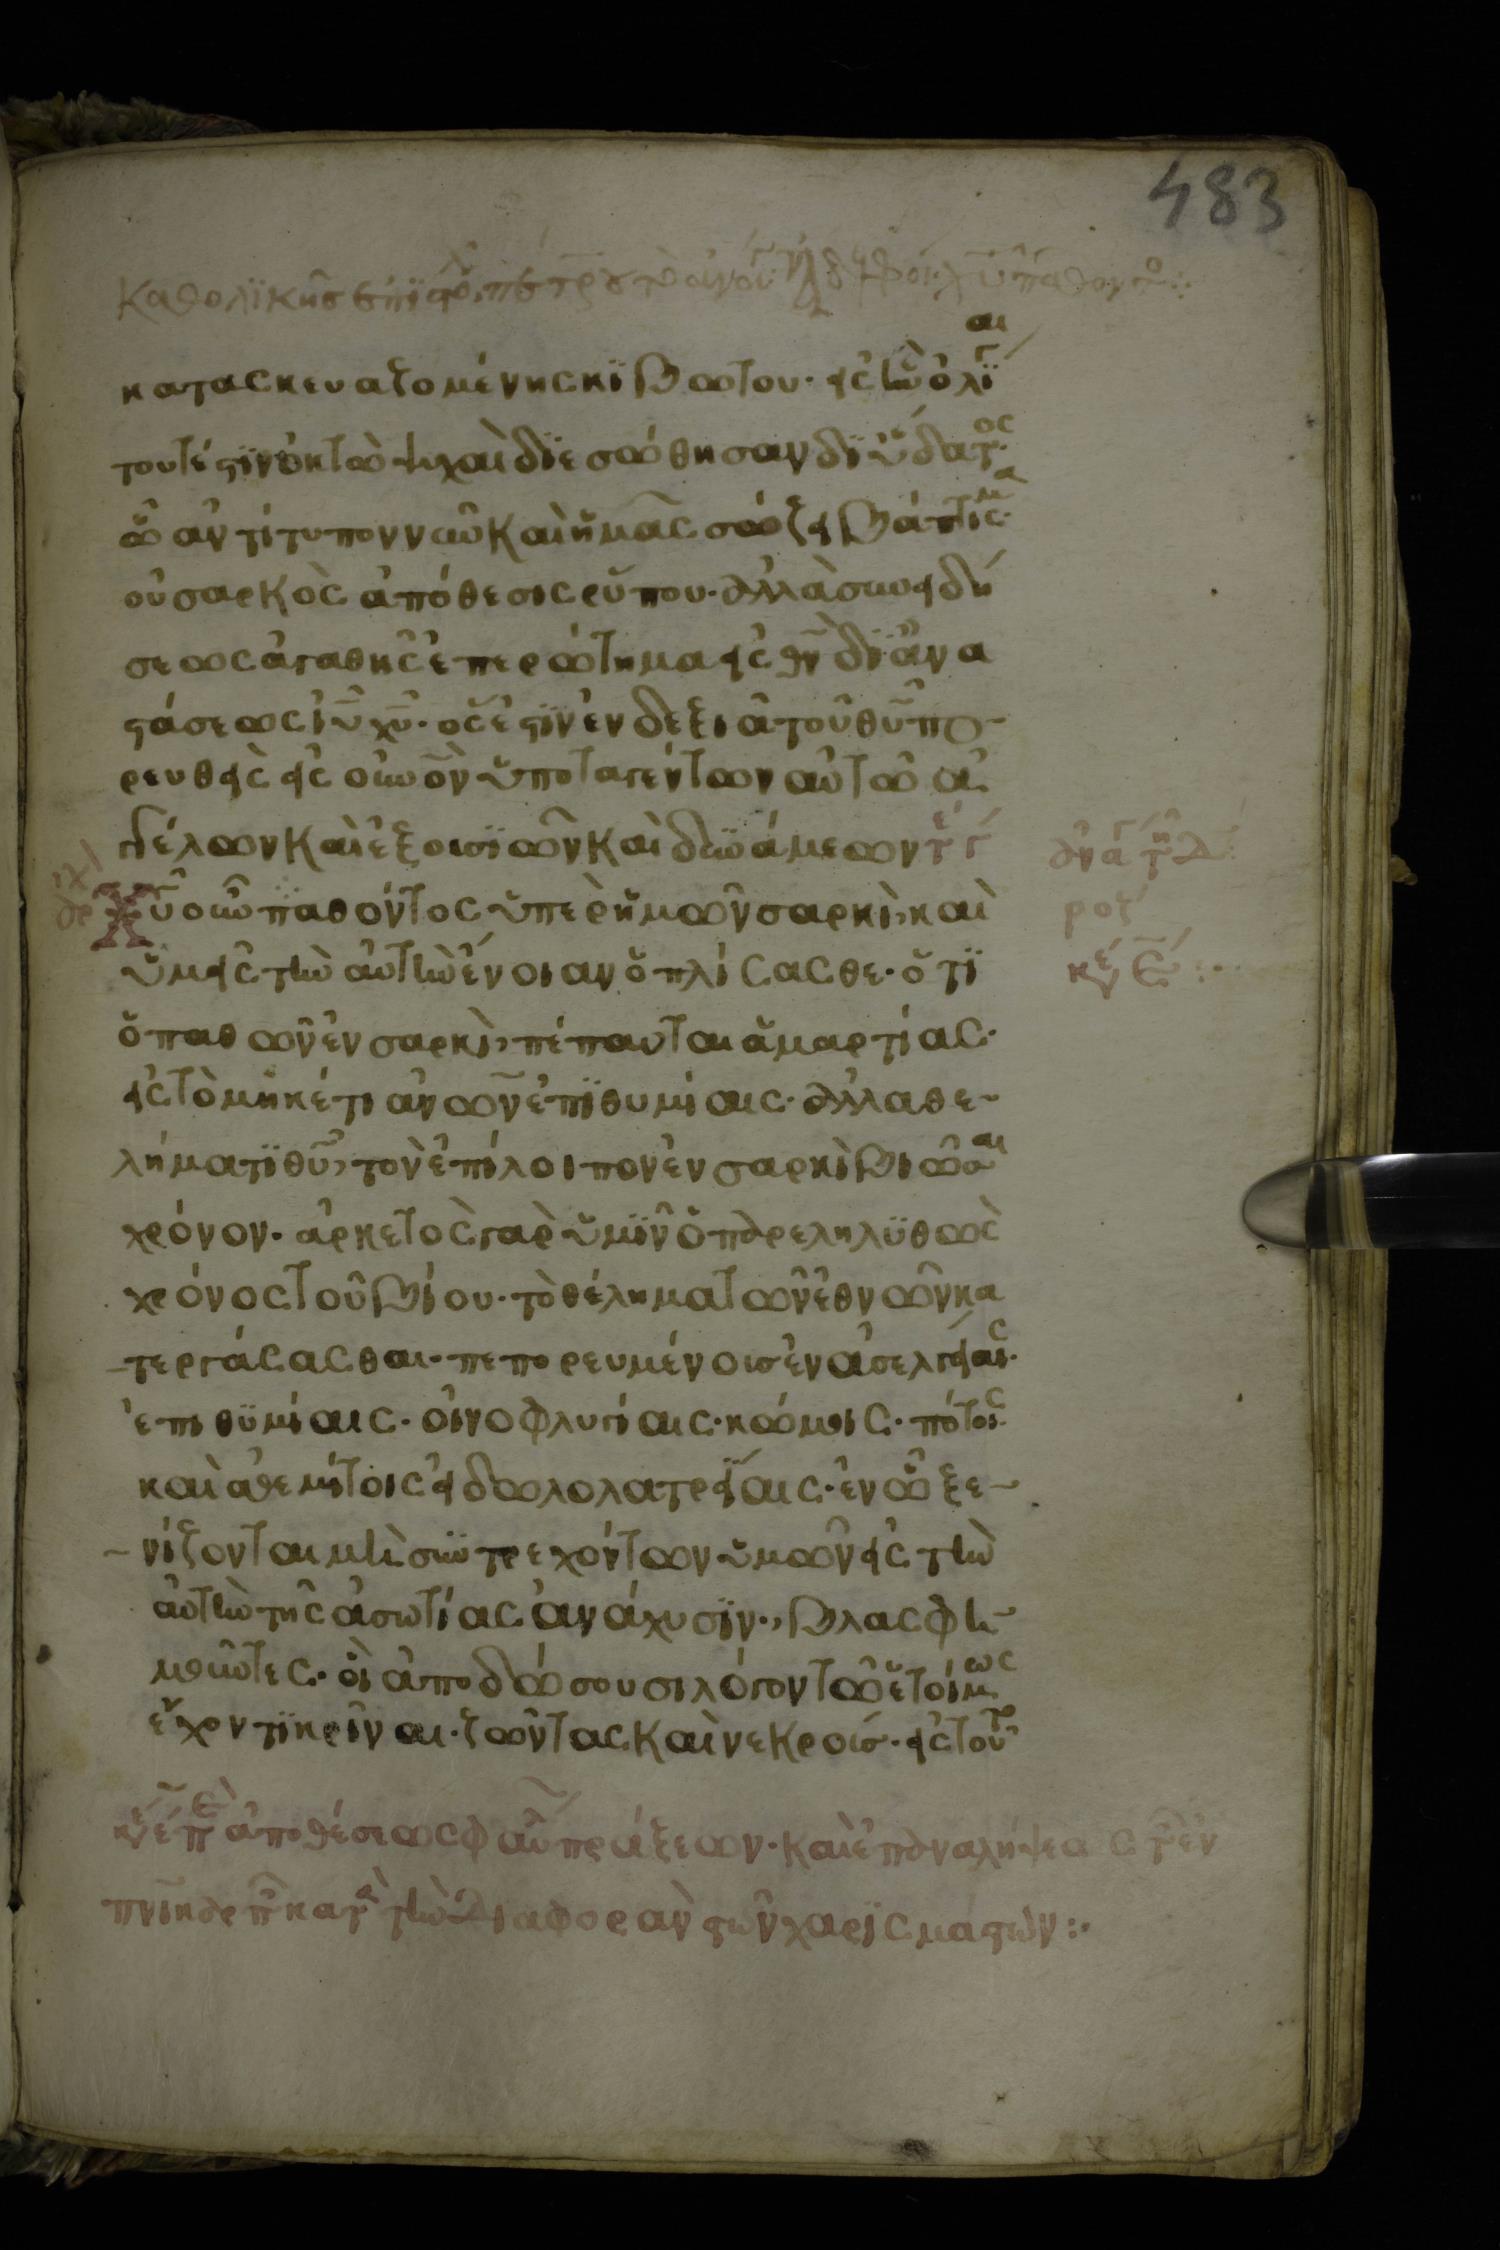 483
κατασκευαζομένης κϊβωτου· εἰς ἣν ὀλί̈γαι
τουτέστϊν ὀκτὼ ψυχαὶ δϊεσώθησαν δϊ ὕδατος·
ὧ ἀντίτυπον νῦν καὶ ἡμᾶς σώζει βάπτισμα·
οὐ σαρκὸς ἀπόθεσις ρύπου· ἀλλὰ συνειδή
σεως ἀγαθης ἐπερώτημα εἰς θν̄ δϊ ἀνα
στάσεως ἰῦ χῦ· ὅς ἐστϊν ἐν δεξιᾶ τοῦ θῦ πο
ρευθεὶς εἰς οὐνὸν ὑποταγέντων αὐτῶ ἀγ
γέλων καὶ ἐξουσϊῶν καὶ δυνάμεων
Χῦ οὖν παθόντος ὑπὲρ ἡμῶν σαρκὶ, καὶ
ὑμεῖς τὴν αὐτὴν ἔνοιαν ὁπλίσασθε· ὅτϊ
ὁ παθὼν ἐν σαρκὶ, πέπαυται ἁμαρτίας·
εἰς τὸ μηκέτι ἀνων̄ ἐπϊθυμίαις· ἀλλα θε
λήματϊ θῦ, τὸν ἐπίλοιπον ἐν σαρκὶ βιῶσαι
χρόνον· ἀρκετὸς γὰρ ὑμῖν ὁ παρεληλϋθὼς
χρόνος τοῦ βίου· τὸ θέλημα τῶν ἐθνῶν κα
τεργάσασθαι· πεπορευμένοις ἐν ἀσελγείαις·
ἐπιθϋμίαις· οἰνοφλυγίαις· κώμοις· πότοις·
καὶ ἀθεμίτοις εἰδωλολατρείαις· ἐν ὧ ξε
νίζονται μὴ συντρεχόντων ὑμῶν εἰς τὴν
αὐτὴν της ἀσωτίας ἀνάχυσϊν·, βλασφη
μοῦντες· οἳ ἀποδώσουσι λόγον τῶ ἑτοίμως
ἔχοντϊ κρῖναι· ζῶντας καὶ νεκρούς· εἰς τοῦτο